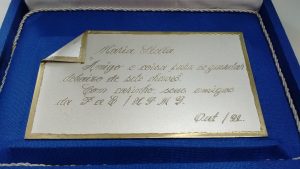 Maria
Amigo é coisa para se guardar
debaixo de sete chaves.
Com carinho, seus amigos
da
Out /